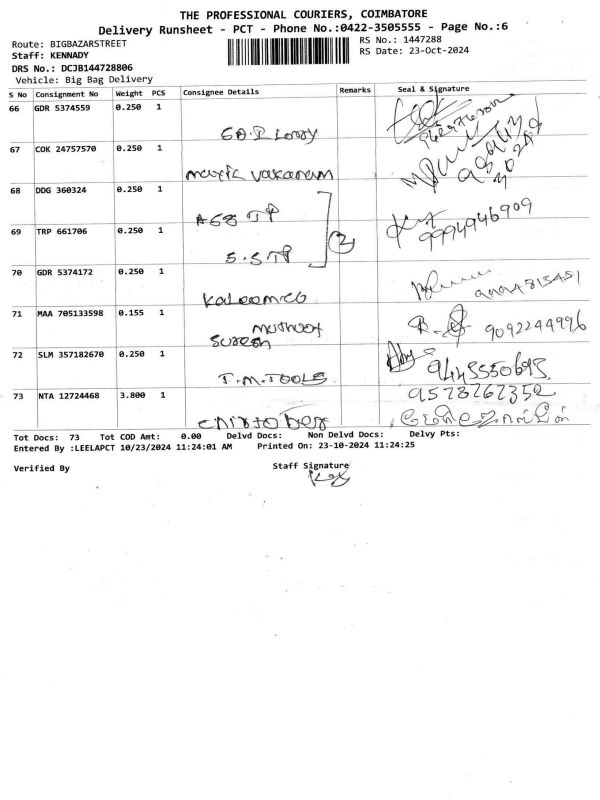 THE PROFESSIONAL COURIERS, COIMBATORE
Delivery Runsheet - PCT - Phone No.:0422-3505555 - Page No.:6
Route: BIGBAZARSTREET
RS No.: 1447288
Staff: KENNADY
RS Date: 23-Oct-2024
DRS No.: DCJB144728806
Vehicle: Big Bag Delivery
S No Consignment No Weight PCS Consignee Details Remarks Seal & Signature
66 GDR 5374559 0.250 1
Lorry
67 COK 24757570 0.250 1
68 DDG 360324 0.250 1
A68 TP
69 TRP 661706 0.250 1
2
9994946909
S.S TP
70 GDR 5374172 0.250 1
71 MAA 705133598 0.155 1
9092244996
Suresh
72 SLM 357182670 0.250 1
T.M.TOOLS
9445550695
73 NTA 12724468 3.800 1
9578767352
Tot Docs: 73 Tot COD Amt: 0.00 Delvd Docs: Non Delvd Docs: Delvy Pts:
Entered By :LEELAPCT 10/23/2024 11:24:01 AM Printed On: 23-10-2024 11:24:25
Verified By Staff Signature